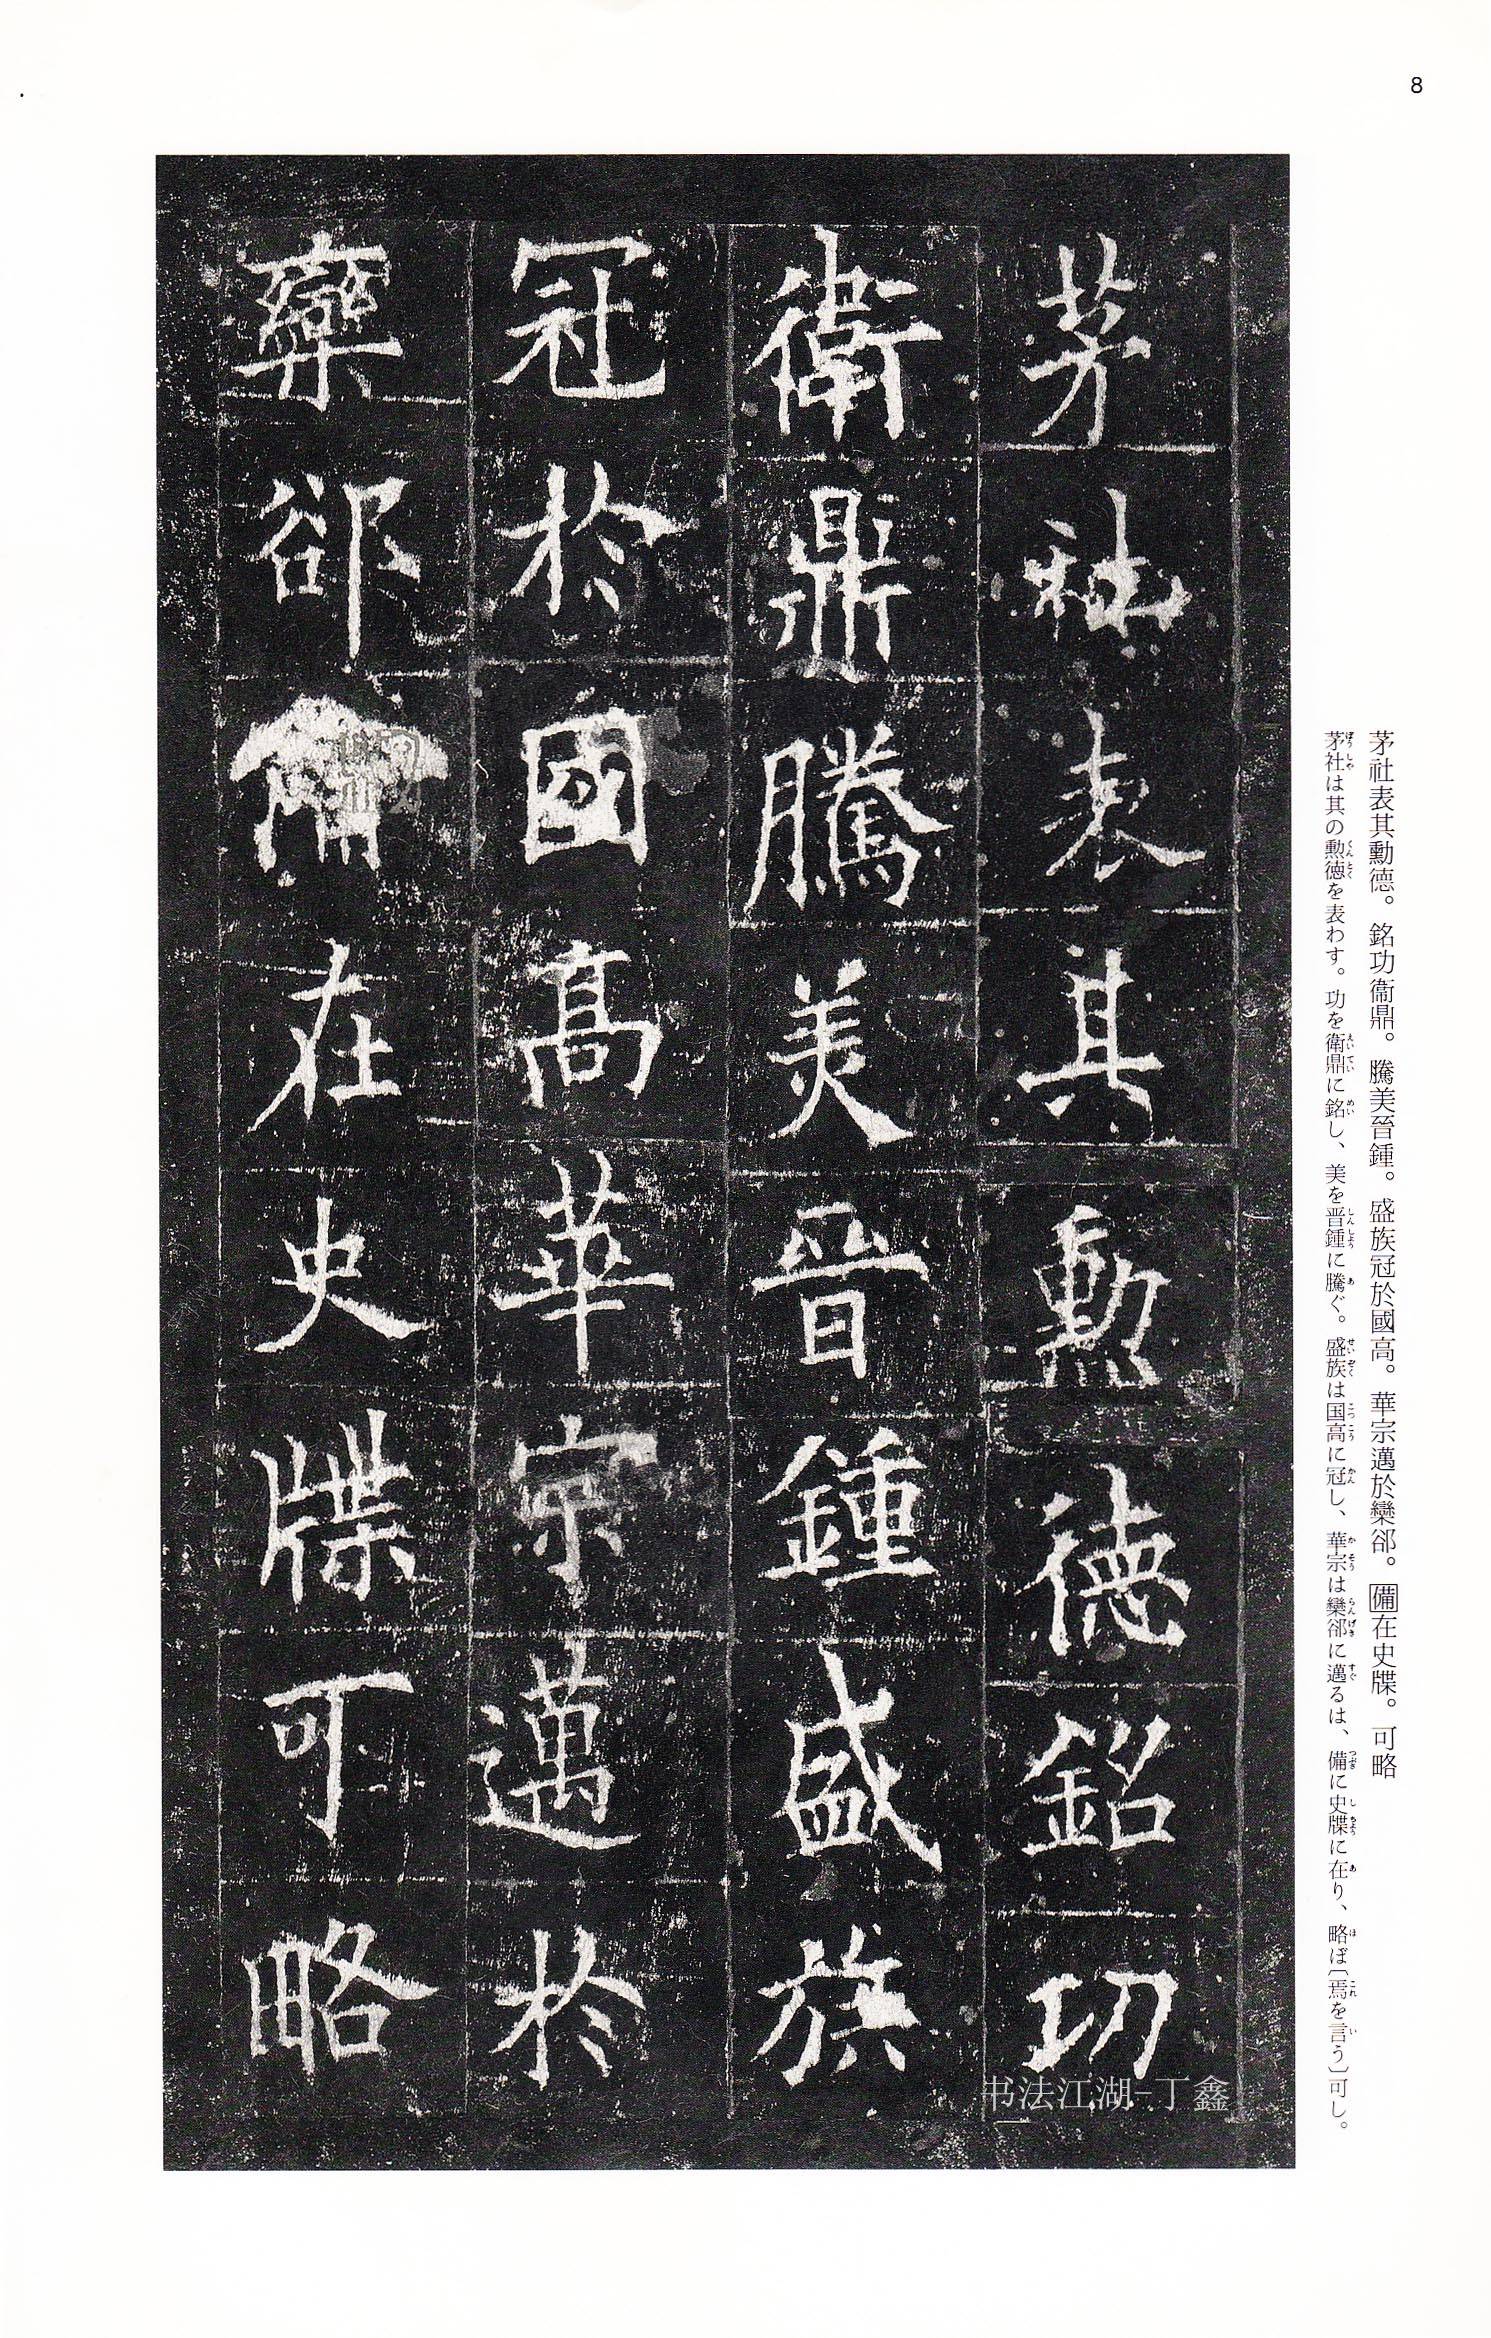 8
茅社表其勳德。銘功衞鼎。騰美晉鍾。盛族冠於國高。華宗邁於欒郤。備在史牒。可略
茅社は其の勲徳を表わす。功を衛鼎に銘し、美を晋鍾に騰ぐ。盛族は国高に冠し、華宗は欒郤に邁るは、備に史牒に在り、略ぼ〔焉を言う〕可し。
茅社表其勳德銘功
衞鼎騰美晉鍾盛族
冠於國高華宗邁於
欒郤備在史牒可略
书法江湖-丁鑫